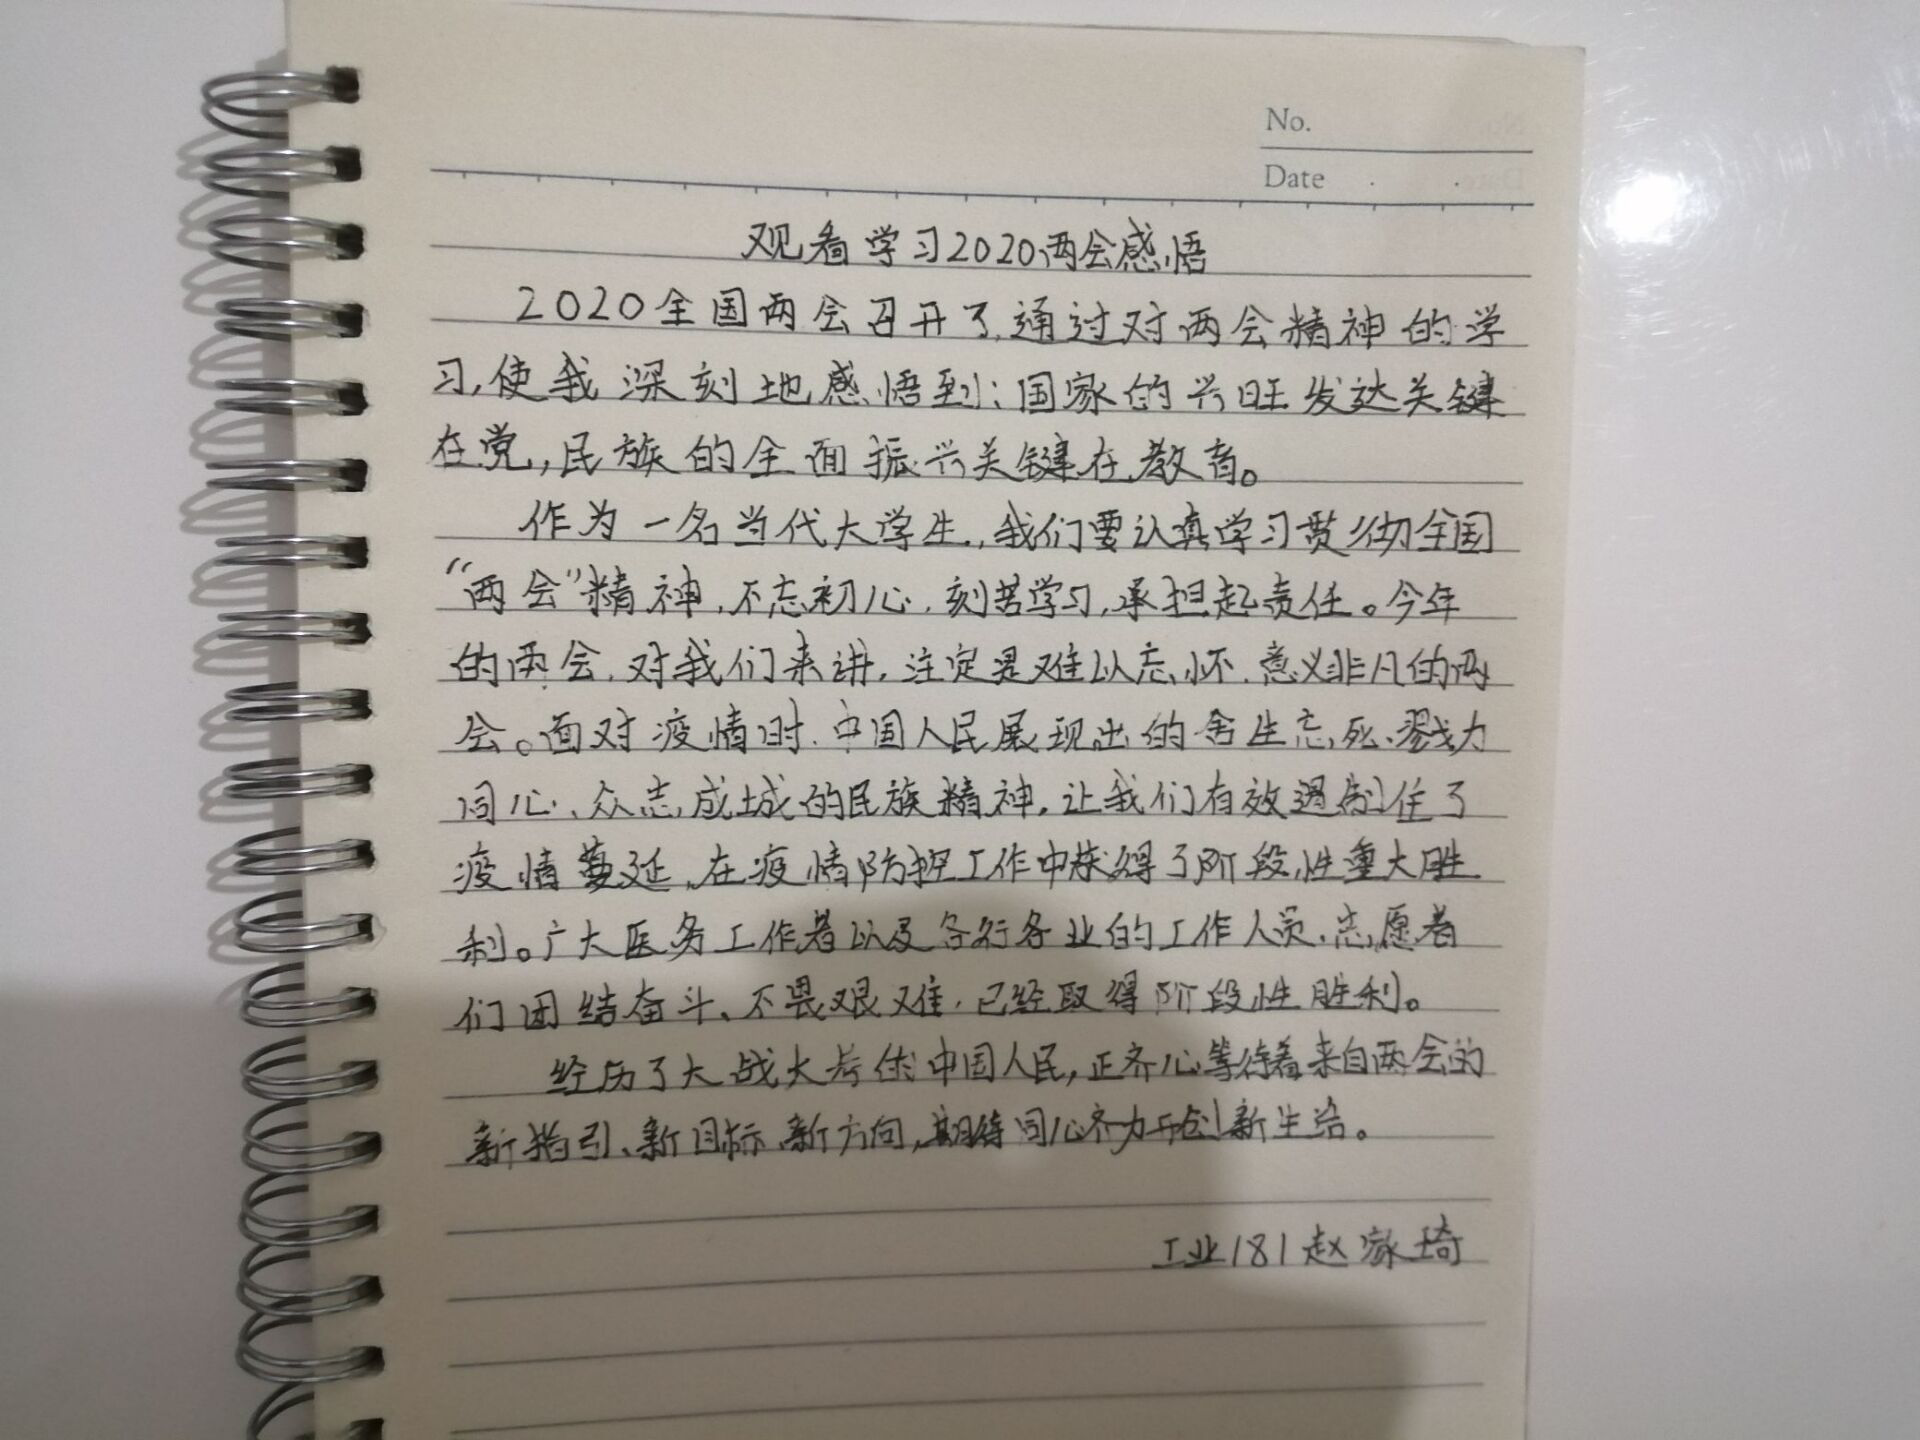 No.
Date
观看学习2020两会感悟
2020全国两会召开了,通过对两会精神的学
习,使我深刻地感悟到:国家的兴旺发达关键
在党,民族的全面振兴关键在教育。
作为一名当代大学生,我们要认真学习贯彻全国
“两会”精神,不忘初心,刻苦学习,承担起责任。今年
的两会,对我们来讲,注定是难以忘怀、意义非凡的两
会。面对疫情时,中国人民展现出的舍生忘死、戮力
同心、众志成城的民族精神,让我们有效遏制住了
疫情蔓延,在疫情防控工作中获得了阶段性重大胜
利。广大医务工作者以及各行各业的工作人员、志愿者
们团结奋斗、不畏艰难,已经取得阶段性胜利。
经历了大战大考的中国人民,正齐心等待着来自两会的
新指引、新目标、新方向,期待同心齐力开创新生活。
工业181赵家琦